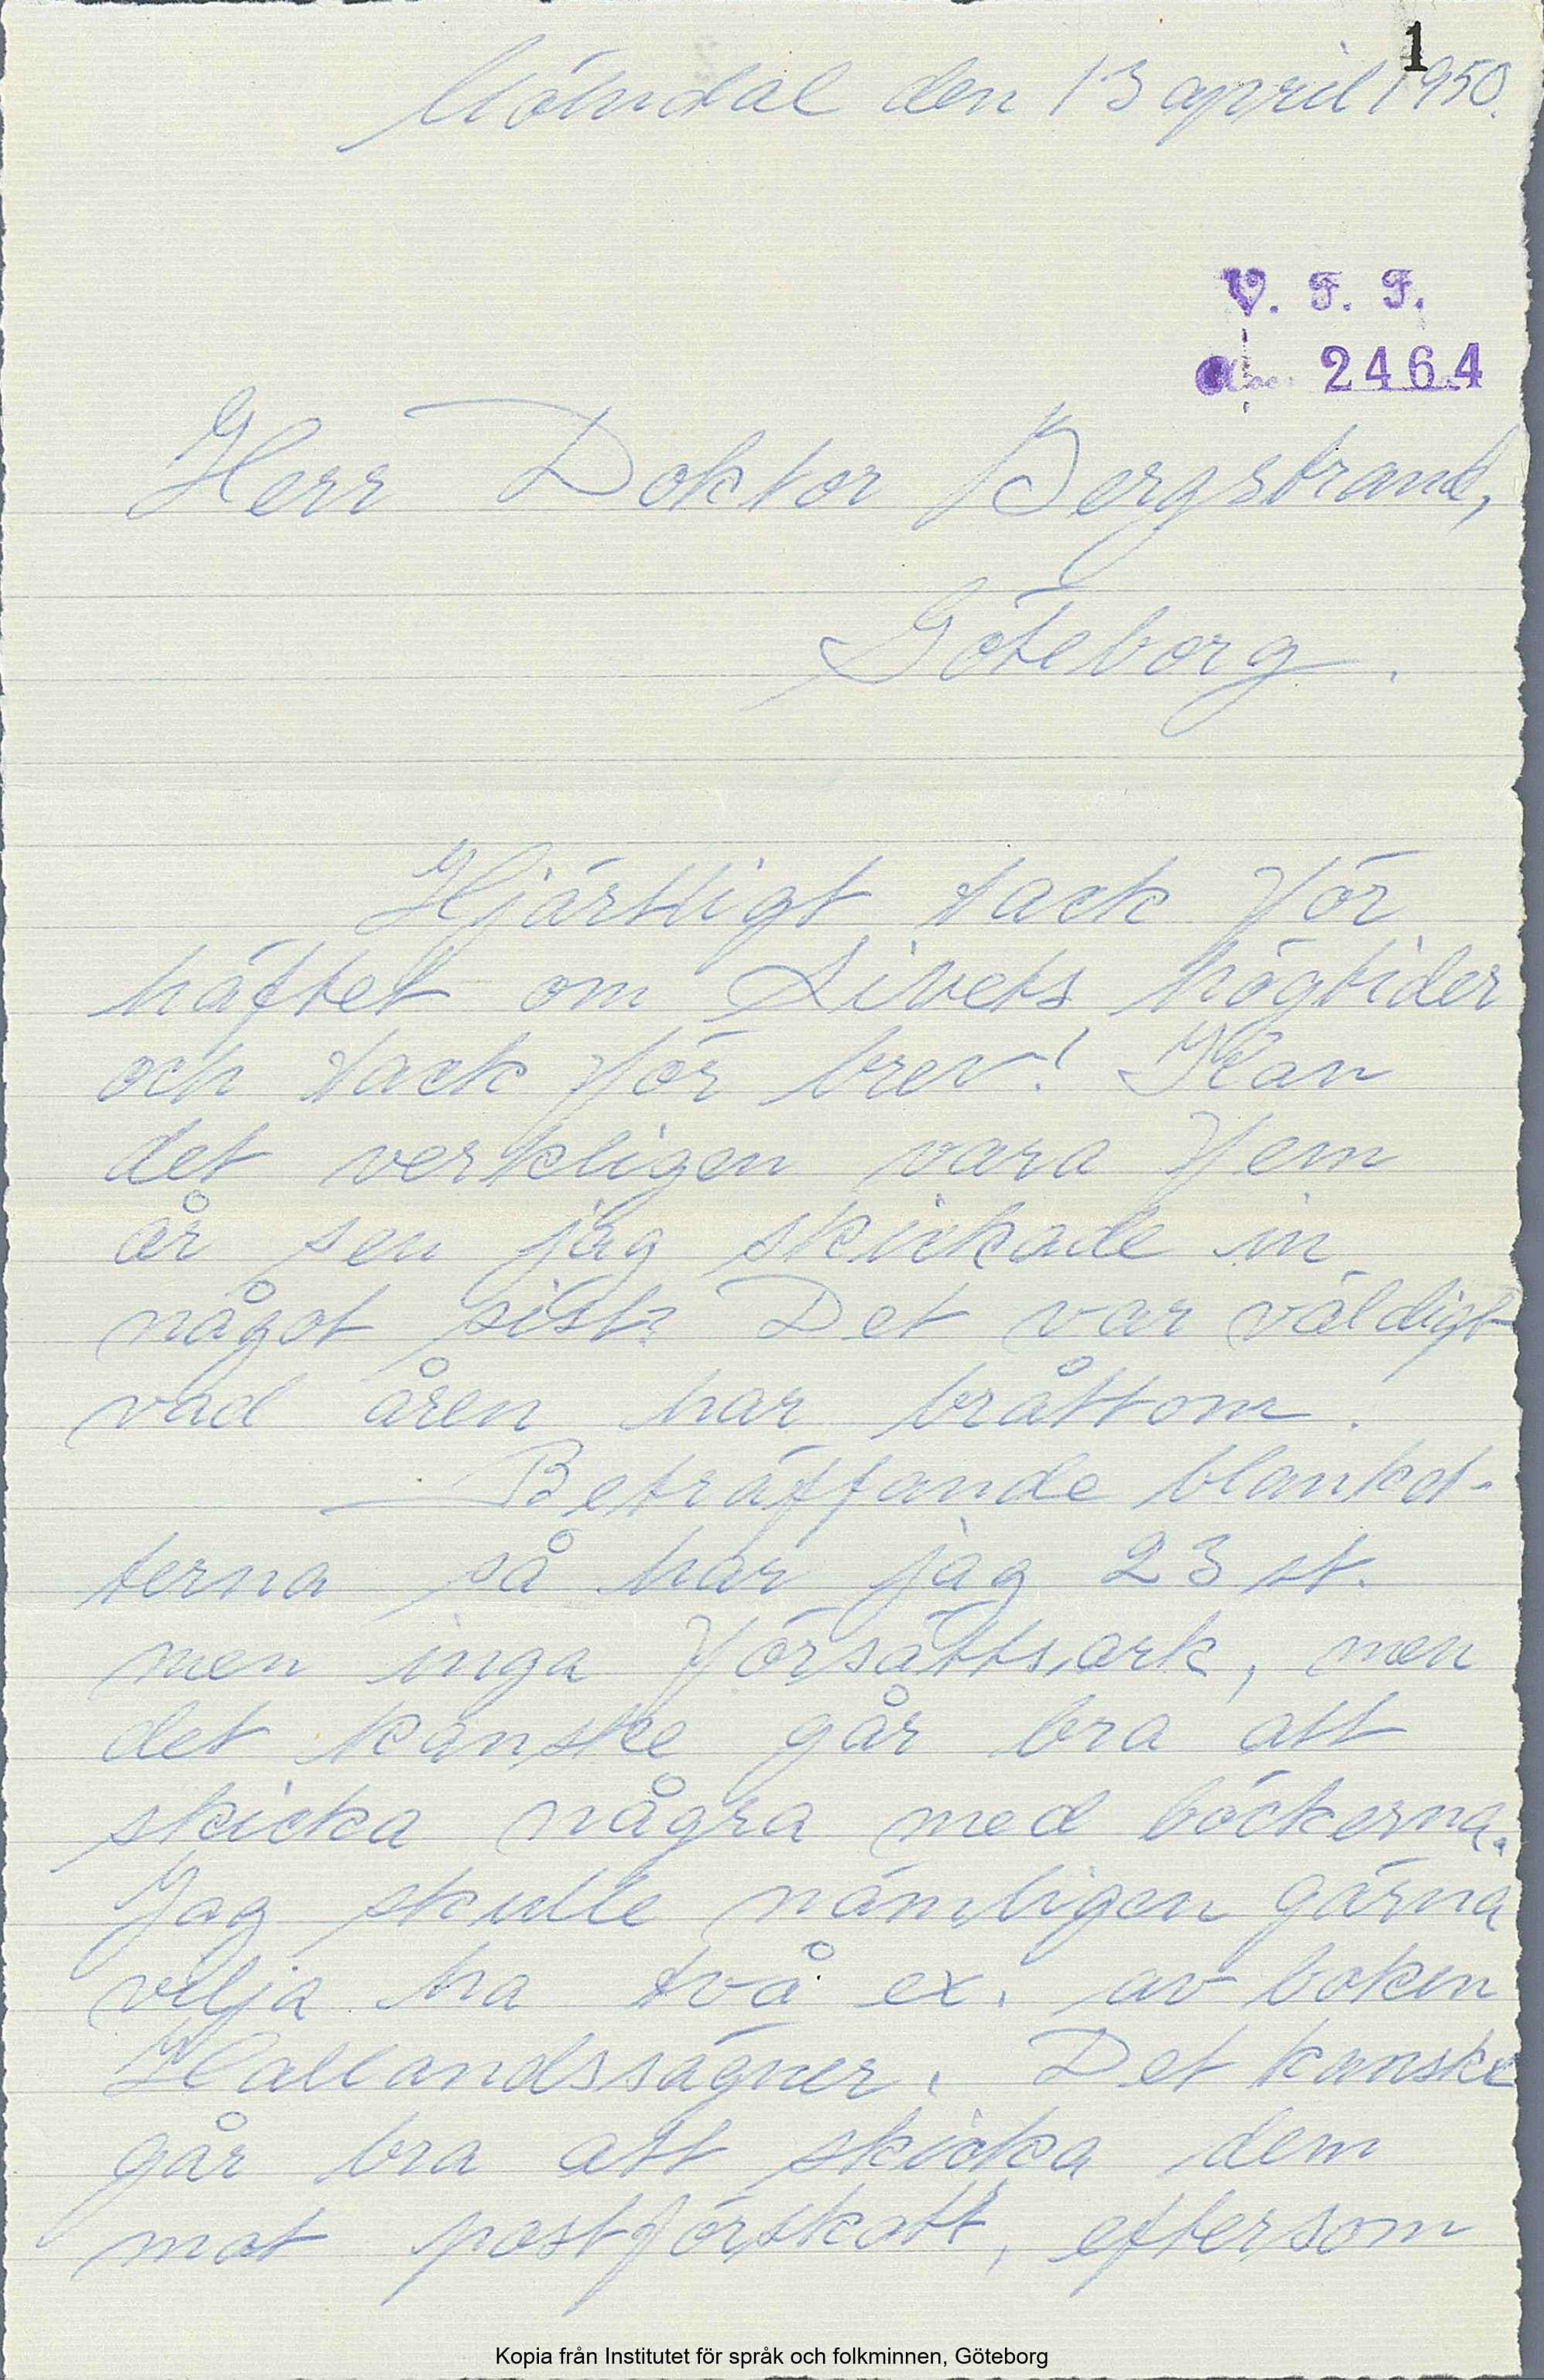 1
Mölndal den 13 april 1950.
V. F. F.
2464
Herr Doktor Bergstrand,
Göteborg.
Hjärtligt tack för
häftet om Livets högtider
och tack för brev! Kan
det verkligen vara fem
år sen jag skickade in
något sist? Det var väldigt
vad åren har bråttom.
Beträffande blanket-
terna så har jag 23 st.
men inga försättsark, men
det kanske går bra att
skicka några med böckerna.
Jag skulle nämligen gärna
vilja ha två ex. av boken
Hallandssägner. Det kanske
går bra att skicka dem
mot postförskott, eftersom
Kopia från Institutet för språk och folkminnen, Göteborg